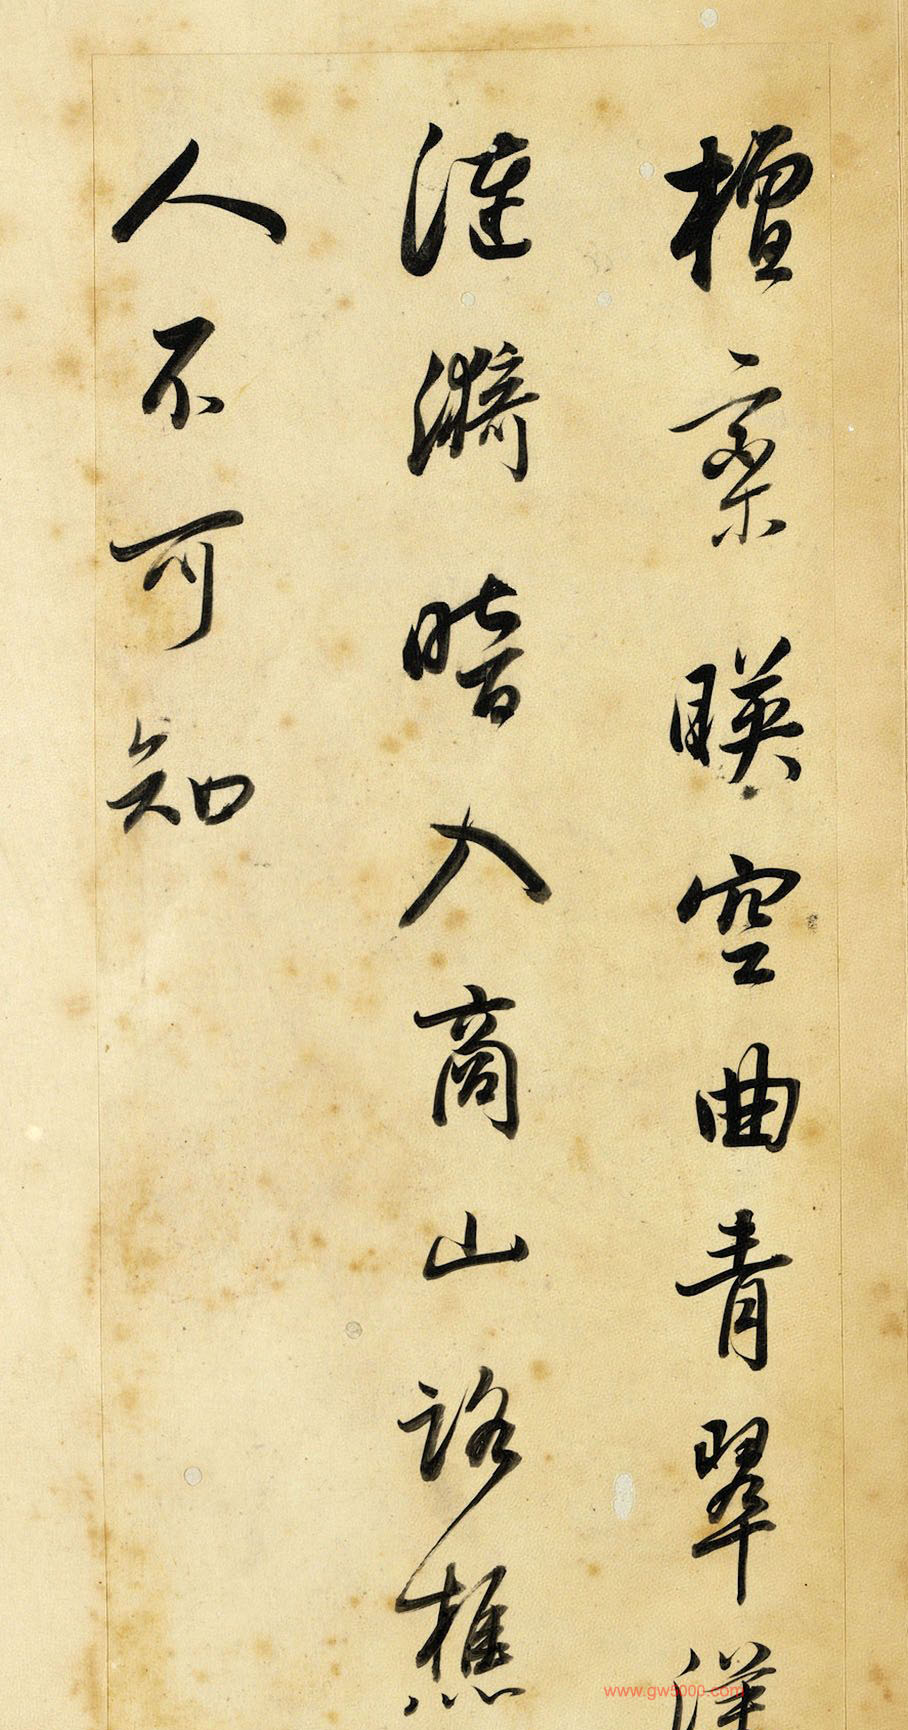 檀欒暎空曲青翠漾
漣漪暗入商山路樵
人不可知
www.gw5000.com